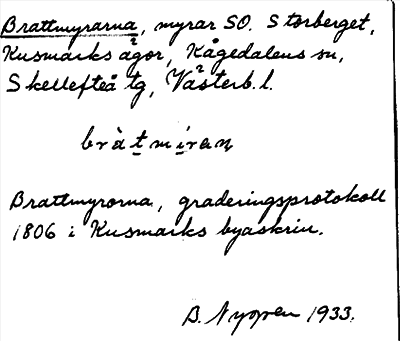 Brattmyrarna, myrar SO. Storberget,
Kusmarks ägor, Kågedalens sn,
Skellefteå tg, Västerb. l.
bràtmiran
Brattmyrorna, graderingsprotokoll
1806 i Kusmarks byaskrin.
B. Nyopen 1933.